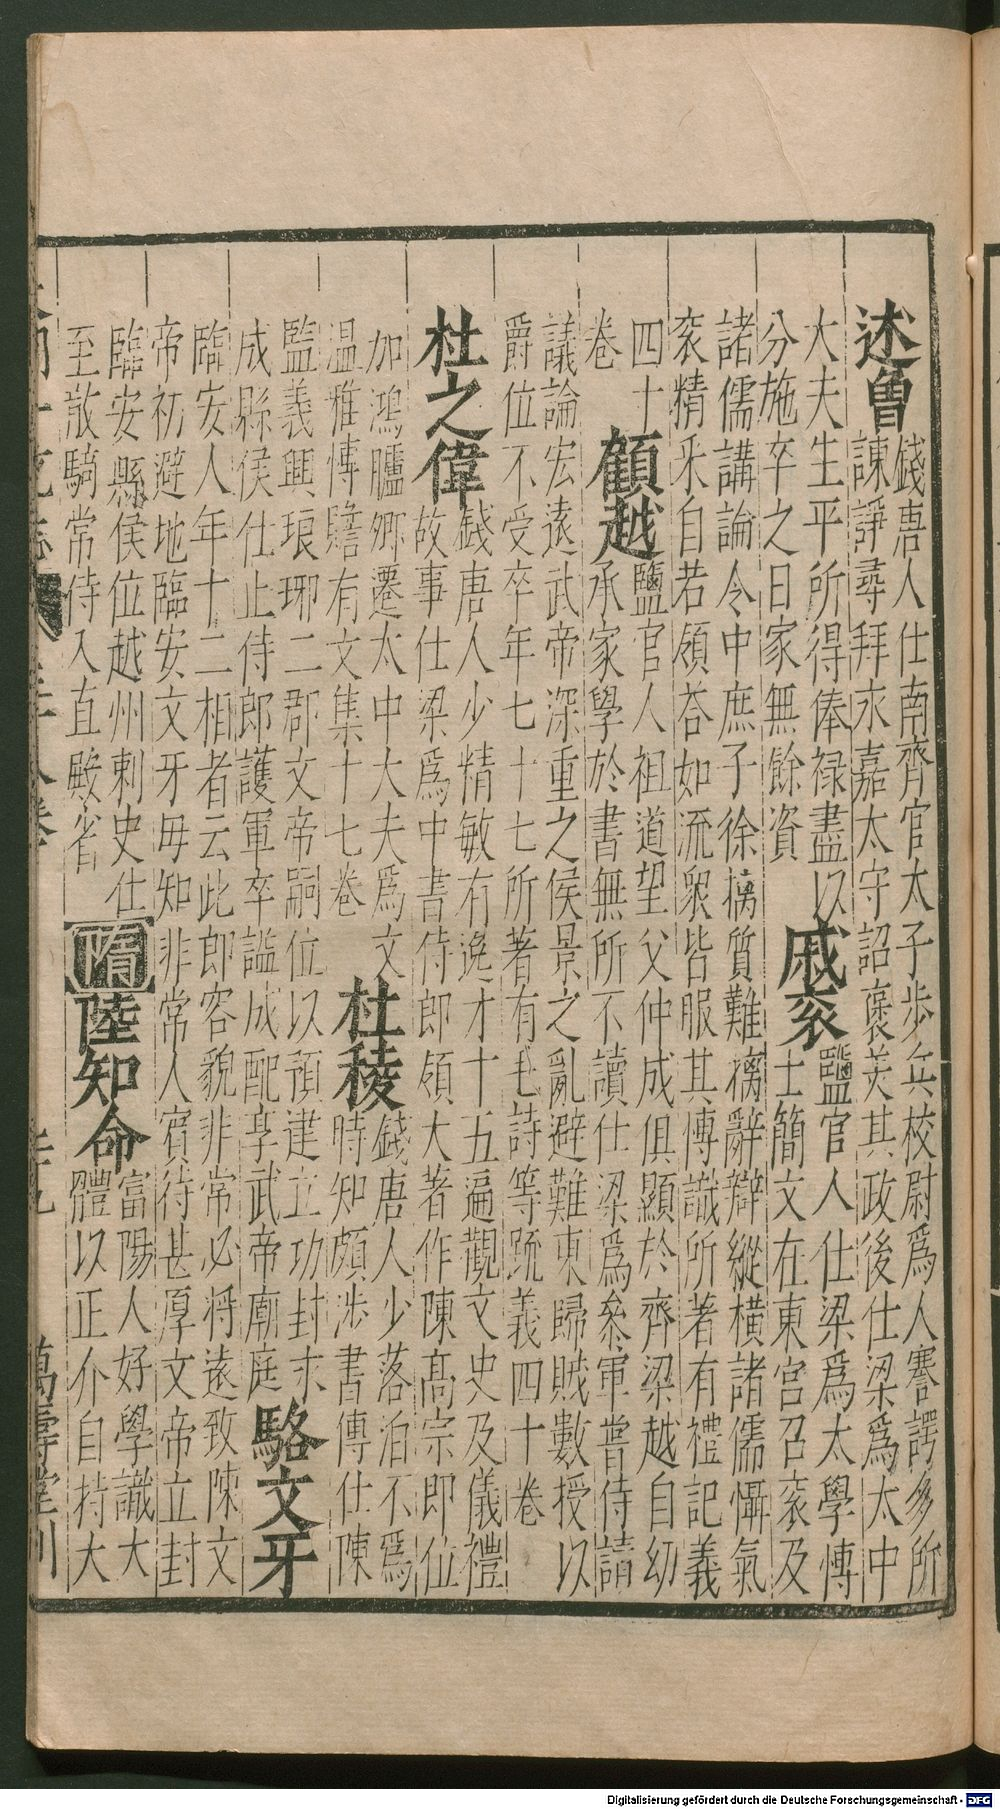 述曾
錢唐人仕南齊官太子歩兵校尉爲人謇諤多所
諫諍尋拜永嘉太守詔襃美其政後仕梁爲太中
大夫生平所得俸禄盡以
分施卒之日家無餘資
戚衮
鹽官人仕梁爲太學愽
士簡文在東宫召衮及
諸儒講論令中庶子徐摛質難摛辭辯縱横諸儒懾氣
衮精采自若領荅如流衆皆服其傳識所著有禮記義
四十
卷
顧越
鹽官人祖道望父仲成俱顯於齊梁越自幼
承家學於書無所不讀仕梁爲叅軍甞侍講
議論宏遠武帝深重之侯景之亂避難東歸賊數授以
爵位不受卒年七十七所著有毛詩等䟽義四十卷
杜之偉
錢唐人少精敏有逸才十五遍觀文史及儀禮
故事仕梁爲中書侍郎領大著作陳髙宗即位
加鴻臚卿遷太中大夫爲文
温雅愽贍有文集十七卷
杜稜
錢唐人少落泊不爲
時知頗涉書傳仕陳
監義興琅琊二郡文帝嗣位以預建立功封永
成縣侯仕止侍郎護軍卒謚成配享武帝廟庭
駱文牙
臨安人年十二相者云此郎容貌非常必將遠致陳文
帝初避地臨安文牙母知非常人賔待甚厚文帝立封
臨安縣侯位越州刺史仕
至散騎常侍入直殿省
隋
陸知命
富陽人好學識大
體以正介自持大
萬壽堂刊
Digitalisierung gefördert durch die Deutsche Forschungsgemeinschaft - DFG